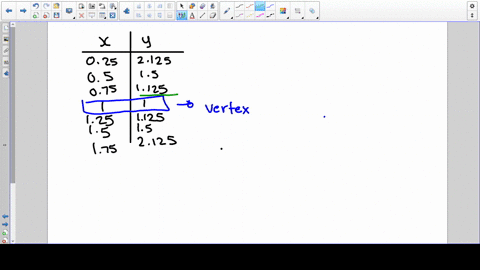 x y
0.25 2.125
0.5 1.5
0.75 1.125
1 1 → vertex
1.25 1.125
1.5 1.5
1.75 2.125